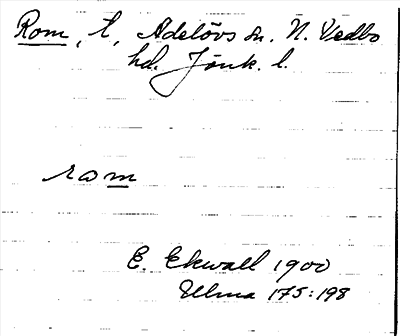 Rom, t, Adelövs sn. N. Vedbo
hd. Jönk. l.
rom
E. Ekwall 1900
Ulma 175:198